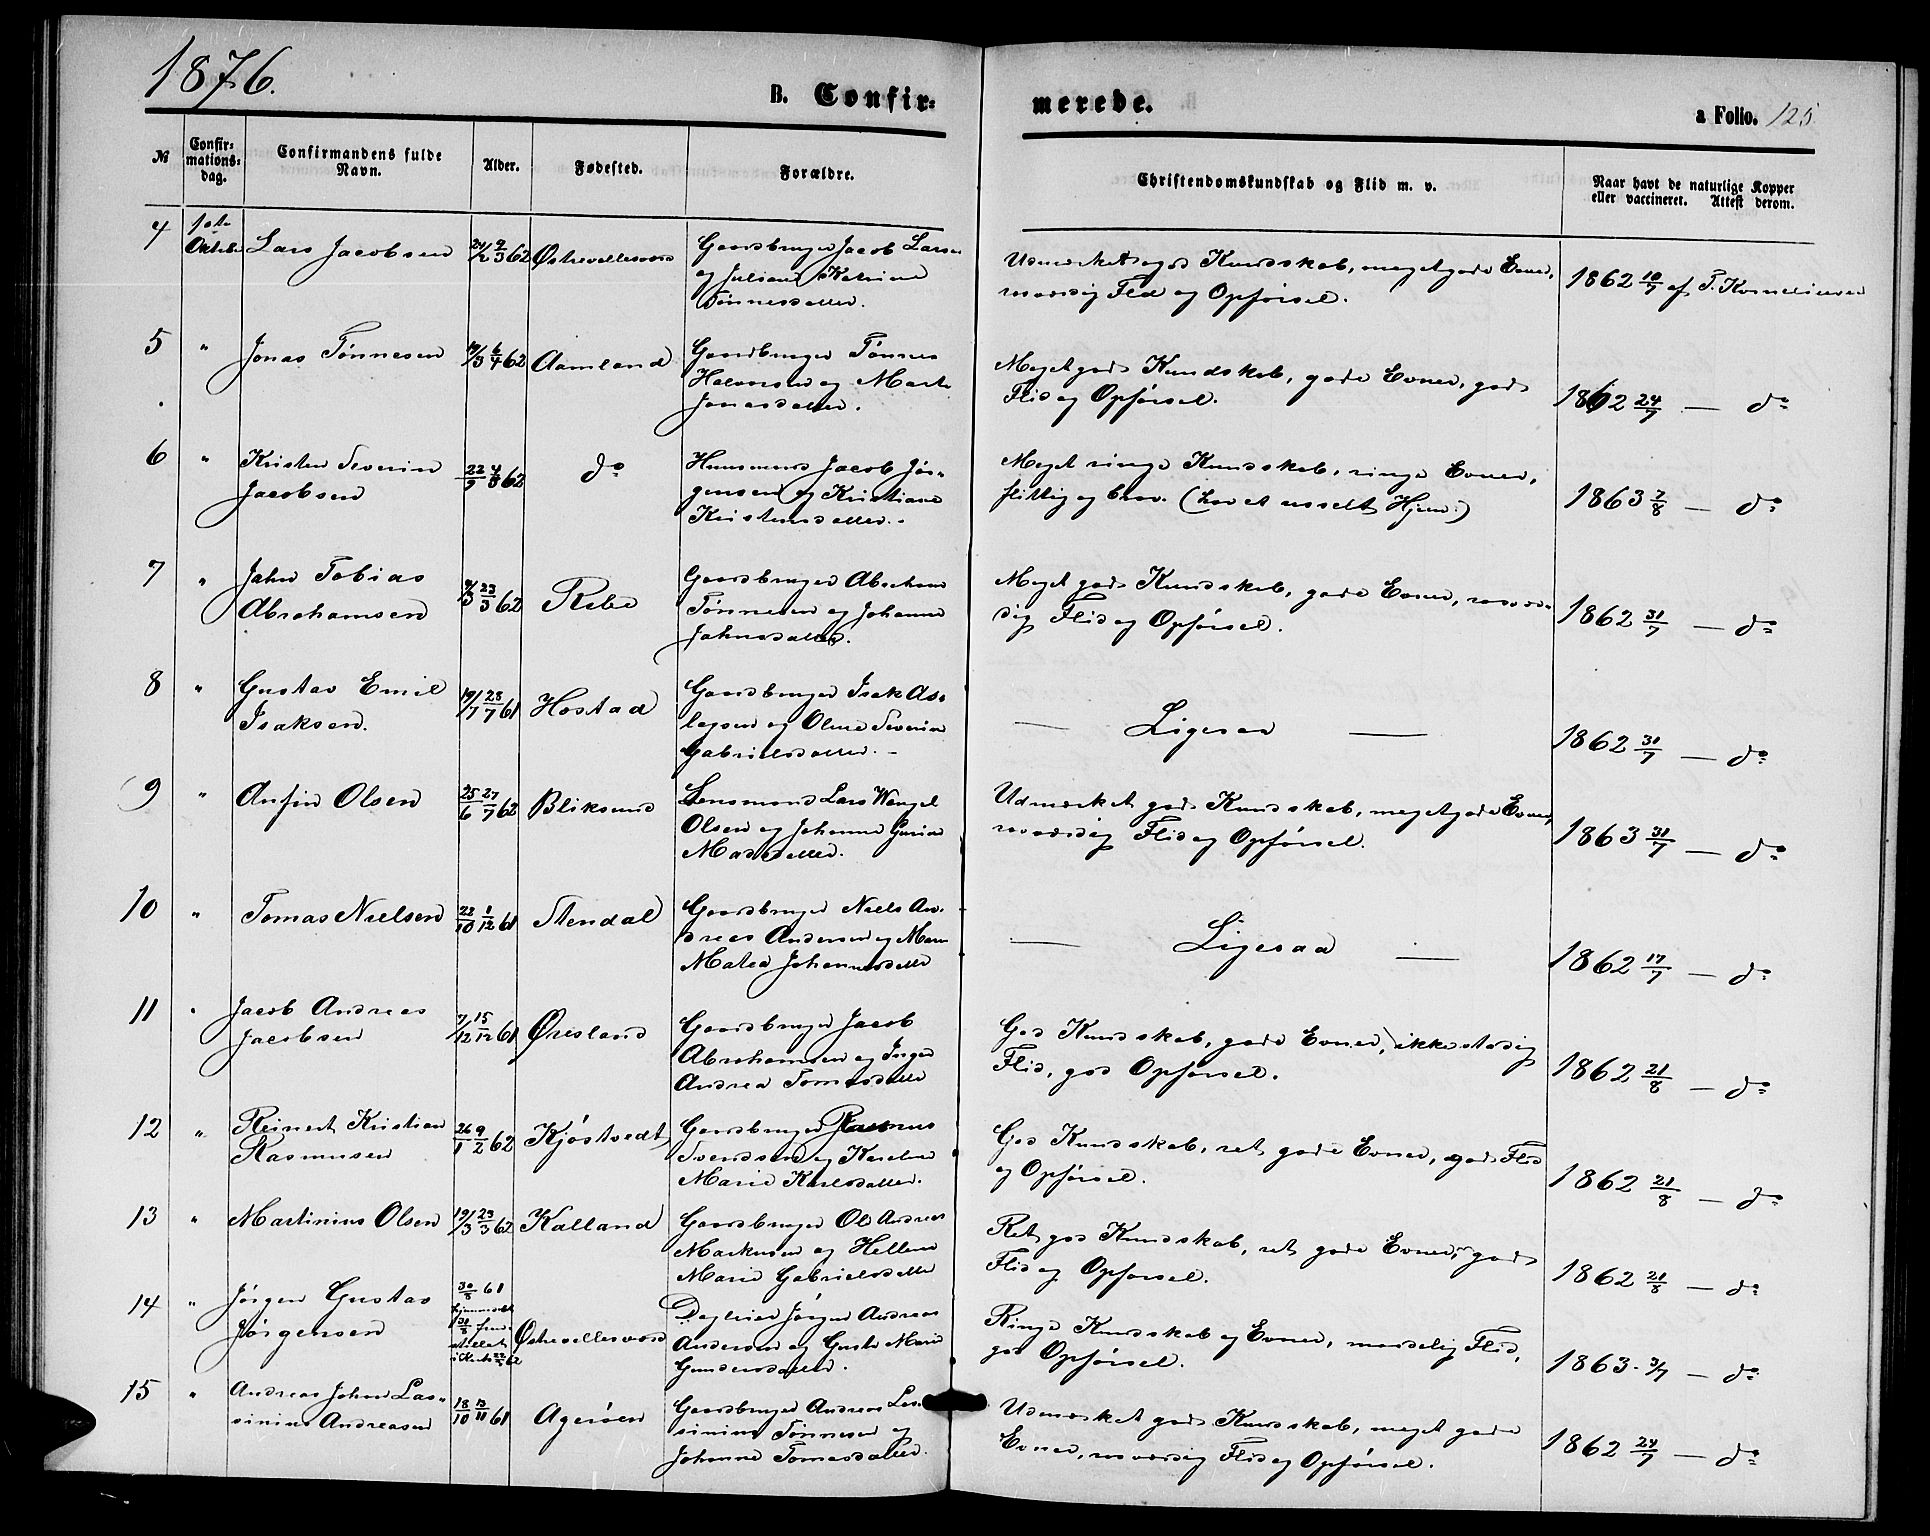 1876.
B. Confir=
merede.
a Folio. 125
№
Confir=
mations=
dag.
Confirmandens fulde
Navn.
Alder.
Fødested.
Forældre.
Christendomskundskab og Flid m. v.
Naar havt de naturlige Kopper
eller vaccineret. Attest derom.
4 1ste Oktob. Lars Jacobsen 24/2 9/3 62 Østrevellesvord
Gaardbruger Jacob Larsen
og Juliane Katrine
Tønnesdatter.
Udmærket god Kundskab, meget gode Evner,
roværdig Flid og Opførsel.
1862 10/7 af T. Korneliusen
5 " Jonas Tønnesen 19/3 6/4 62 Aamland
Gaardbruger Tønnes
Halvorsen og Marte
Jonasdatter.
Meget god Kundskab, gode Evner, god
Flid og Opførsel.
1862 24/7 — do
6 " Kristen Severin
Jacobsen
62 do
Huusmand Jacob Jør-
gensen og Kristiane
Kristensdatter.
Meget ringe Kundskab, ringe Evner,
flittig og brav. (har et usselt Hjem.)
1863 7/8 — do
7 " Jahn Tobias
Abrahamsen
9/3 23/3 62 Ribe
Gaardbruger Abraham
Tønnesen og Johanne
Jahnsdatter.
Meget god Kundskab, gode Evner, roværdig
Flid og Opførsel.
1862 31/7 — do
8 " Gustav Emil
Isaksen.
19/7 28/7 61 Hostad
Gaardbruger Isak As-
lagsen og Oline Severine
Gabrielsdatter. –
— Ligesaa —
1862 31/7 — do
9 " Anfin Olsen 25/6 27/7 62 Bliksund
Lensmand Lars Wengel
Olsen og Johanne Gurine
Madsdatter.
Udmærket god Kundskab, meget gode Evner,
roværdig Flid og Opførsel.
1863 31/7 — do
10 " Tomas Nielsen 22/10 1/12 61 Stendal
Gaardbruger Niels An-
dreas Andersen og Maren
Matea Johannesdatter
— Ligesaa —
1862 17/7 — do
11 " Jacob Andreas
Jacobsen
7/12 15/12 61 Øresland
Gaardbruger Jacob
Abrahamsen og Inger
Andrea Tomasdatter
God Kundskab, gode Evner, ikke stadig
Flid, god Opførsel.
1862 21/8 — do
12 " Reinert Kristian
Rasmusen
26/1 9/2 62 Kjøstvedt
Gaardbruger Rasmus
Svendsen og Karoline
Marie Karlsdatter.
God Kundskab, ret gode Evner, god Flid
og Opførsel.
1862 21/8 — do
13 " Martinius Olsen 19/3 23/3 62 Kalland
Gaardbruger Ole Andreas
Markusen og Hellene
Marie Gabrielsdatter
Ret god Kundskab, ret gode Evner, god
Flid og Opførsel.
1862 21/8 — do
14 " Jørgen Gustav
Jørgensen
30/8 61
hjemmedøbt
31/8 frem-
stillet
i Kirke 62 Østrevellesvord
Dagleier Jørgen Andreas
Andersen og Guste Marie
Gundersdatter.
Ringe Kundskab og Evner, maadelig Flid,
god Opførsel.
1863. 3/7 — do
15 " Andreas Johan Las-
sinius Andreasen
18/10 13/11 61 Agerøen
Gaardbruger Andreas Las-
sinius Tønnesen og
Johanne Tomasdatter.
Udmærket god Kundskab, meget gode
Evner, roværdig Flid og Opførsel.
1862 24/7 — do